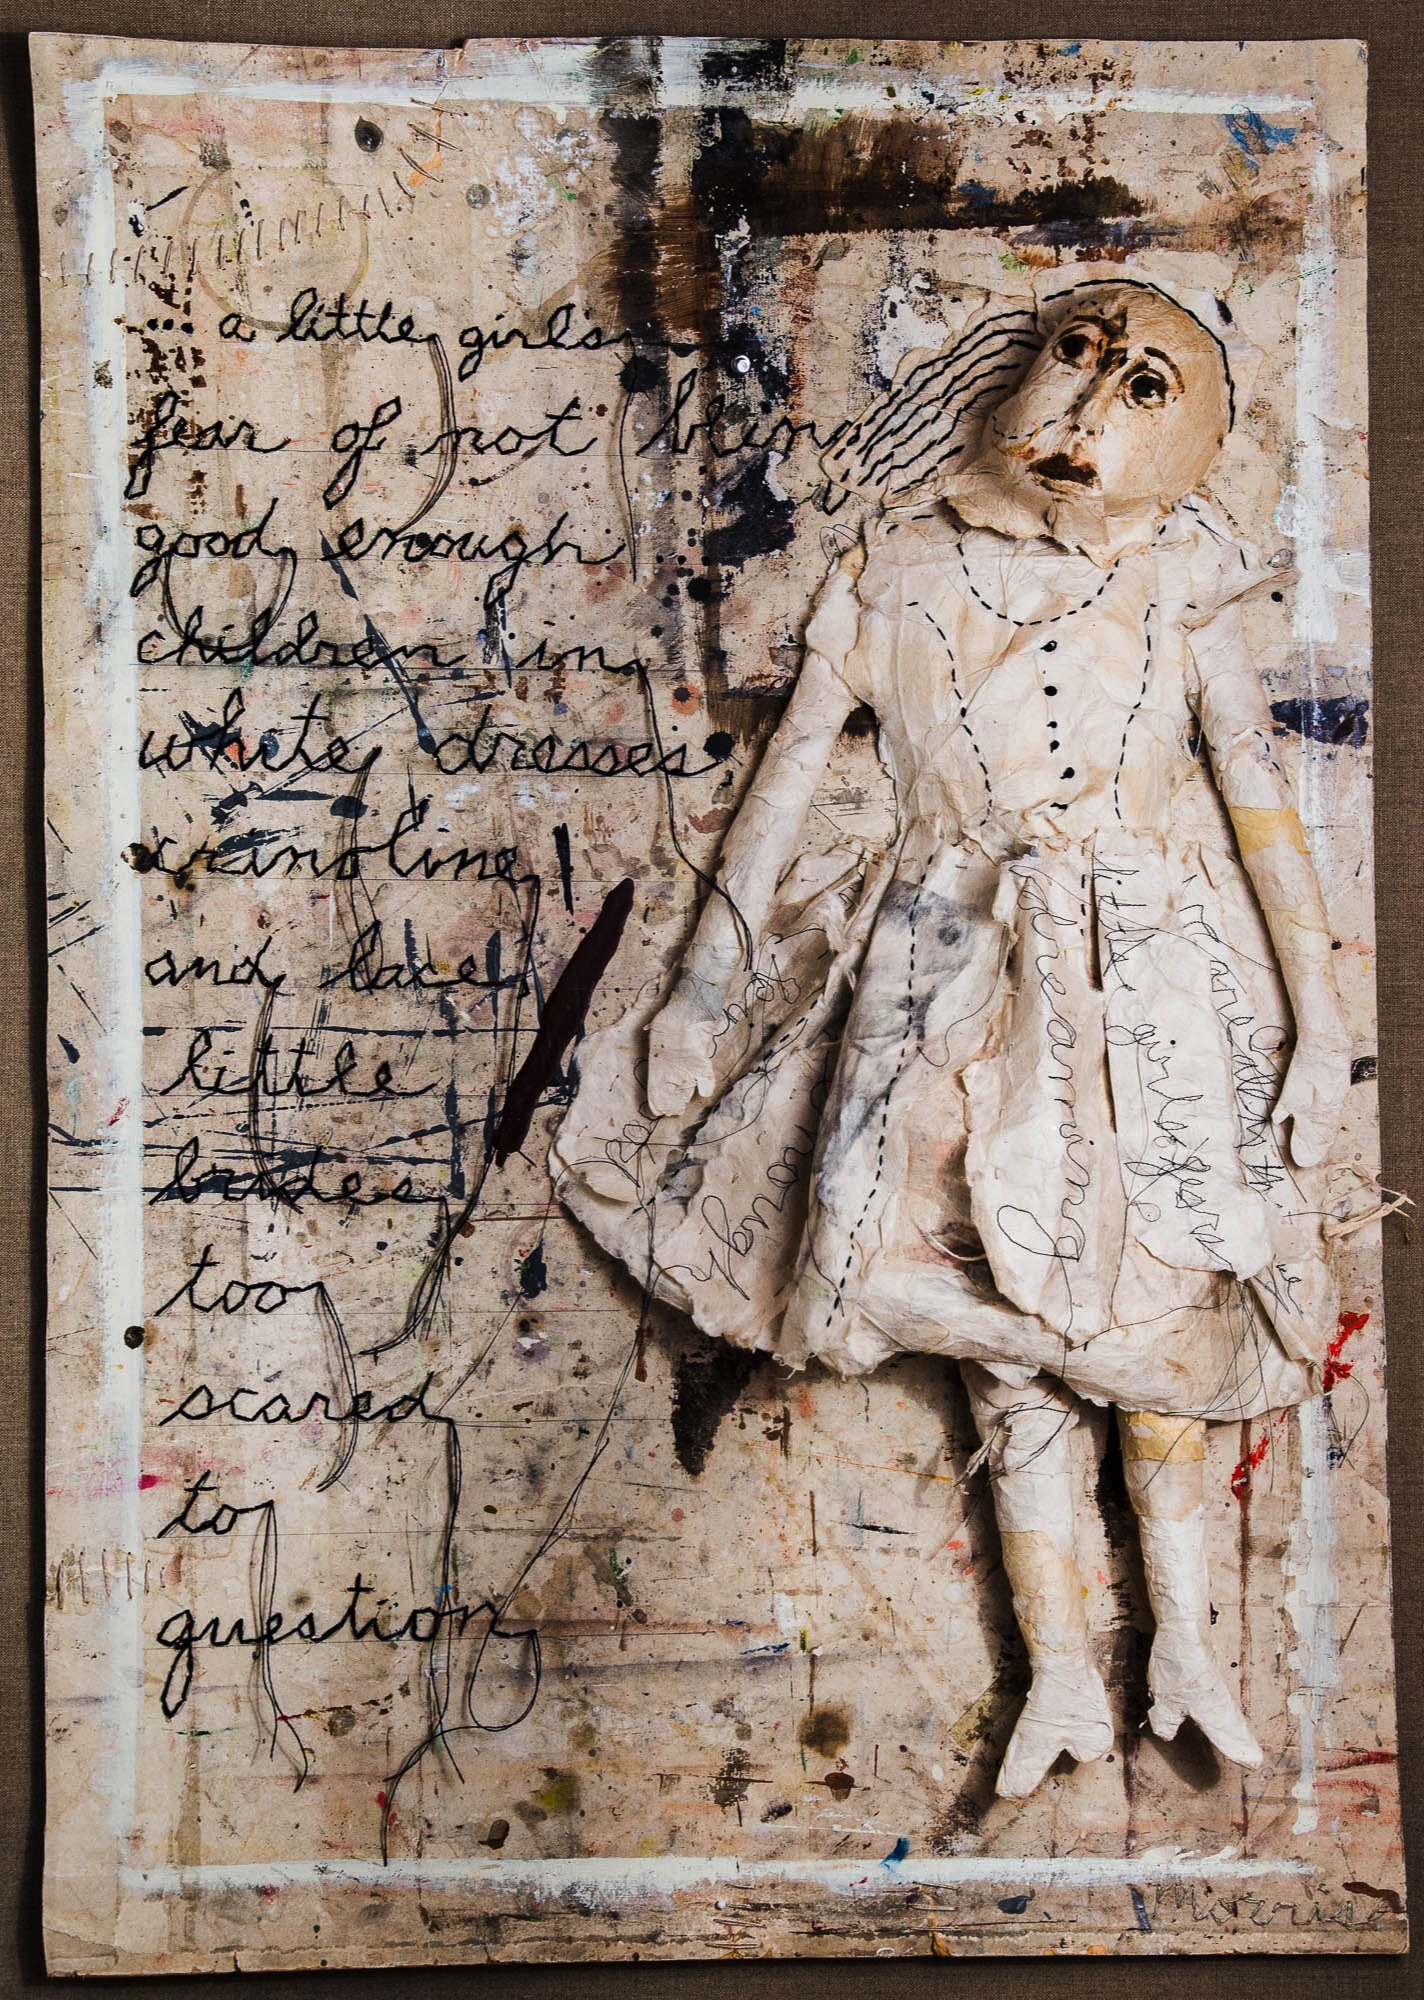 a little girls
fear of not being
good enough
children in
white dresses
crinoline
and lace
little
brides
too
scared
to
question
fear
of
not
enough
dreaming
little girls fears